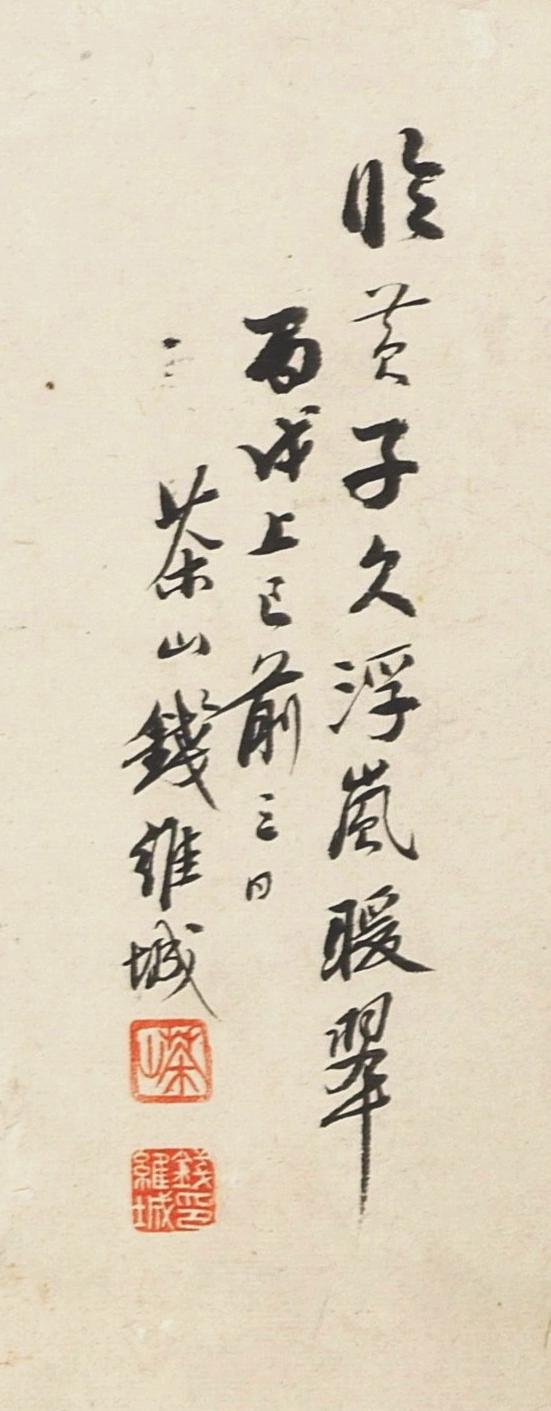 臨黃子久浮嵐暖翠
丙戌上巳前三日
茶山錢維城
茶山
錢印維城